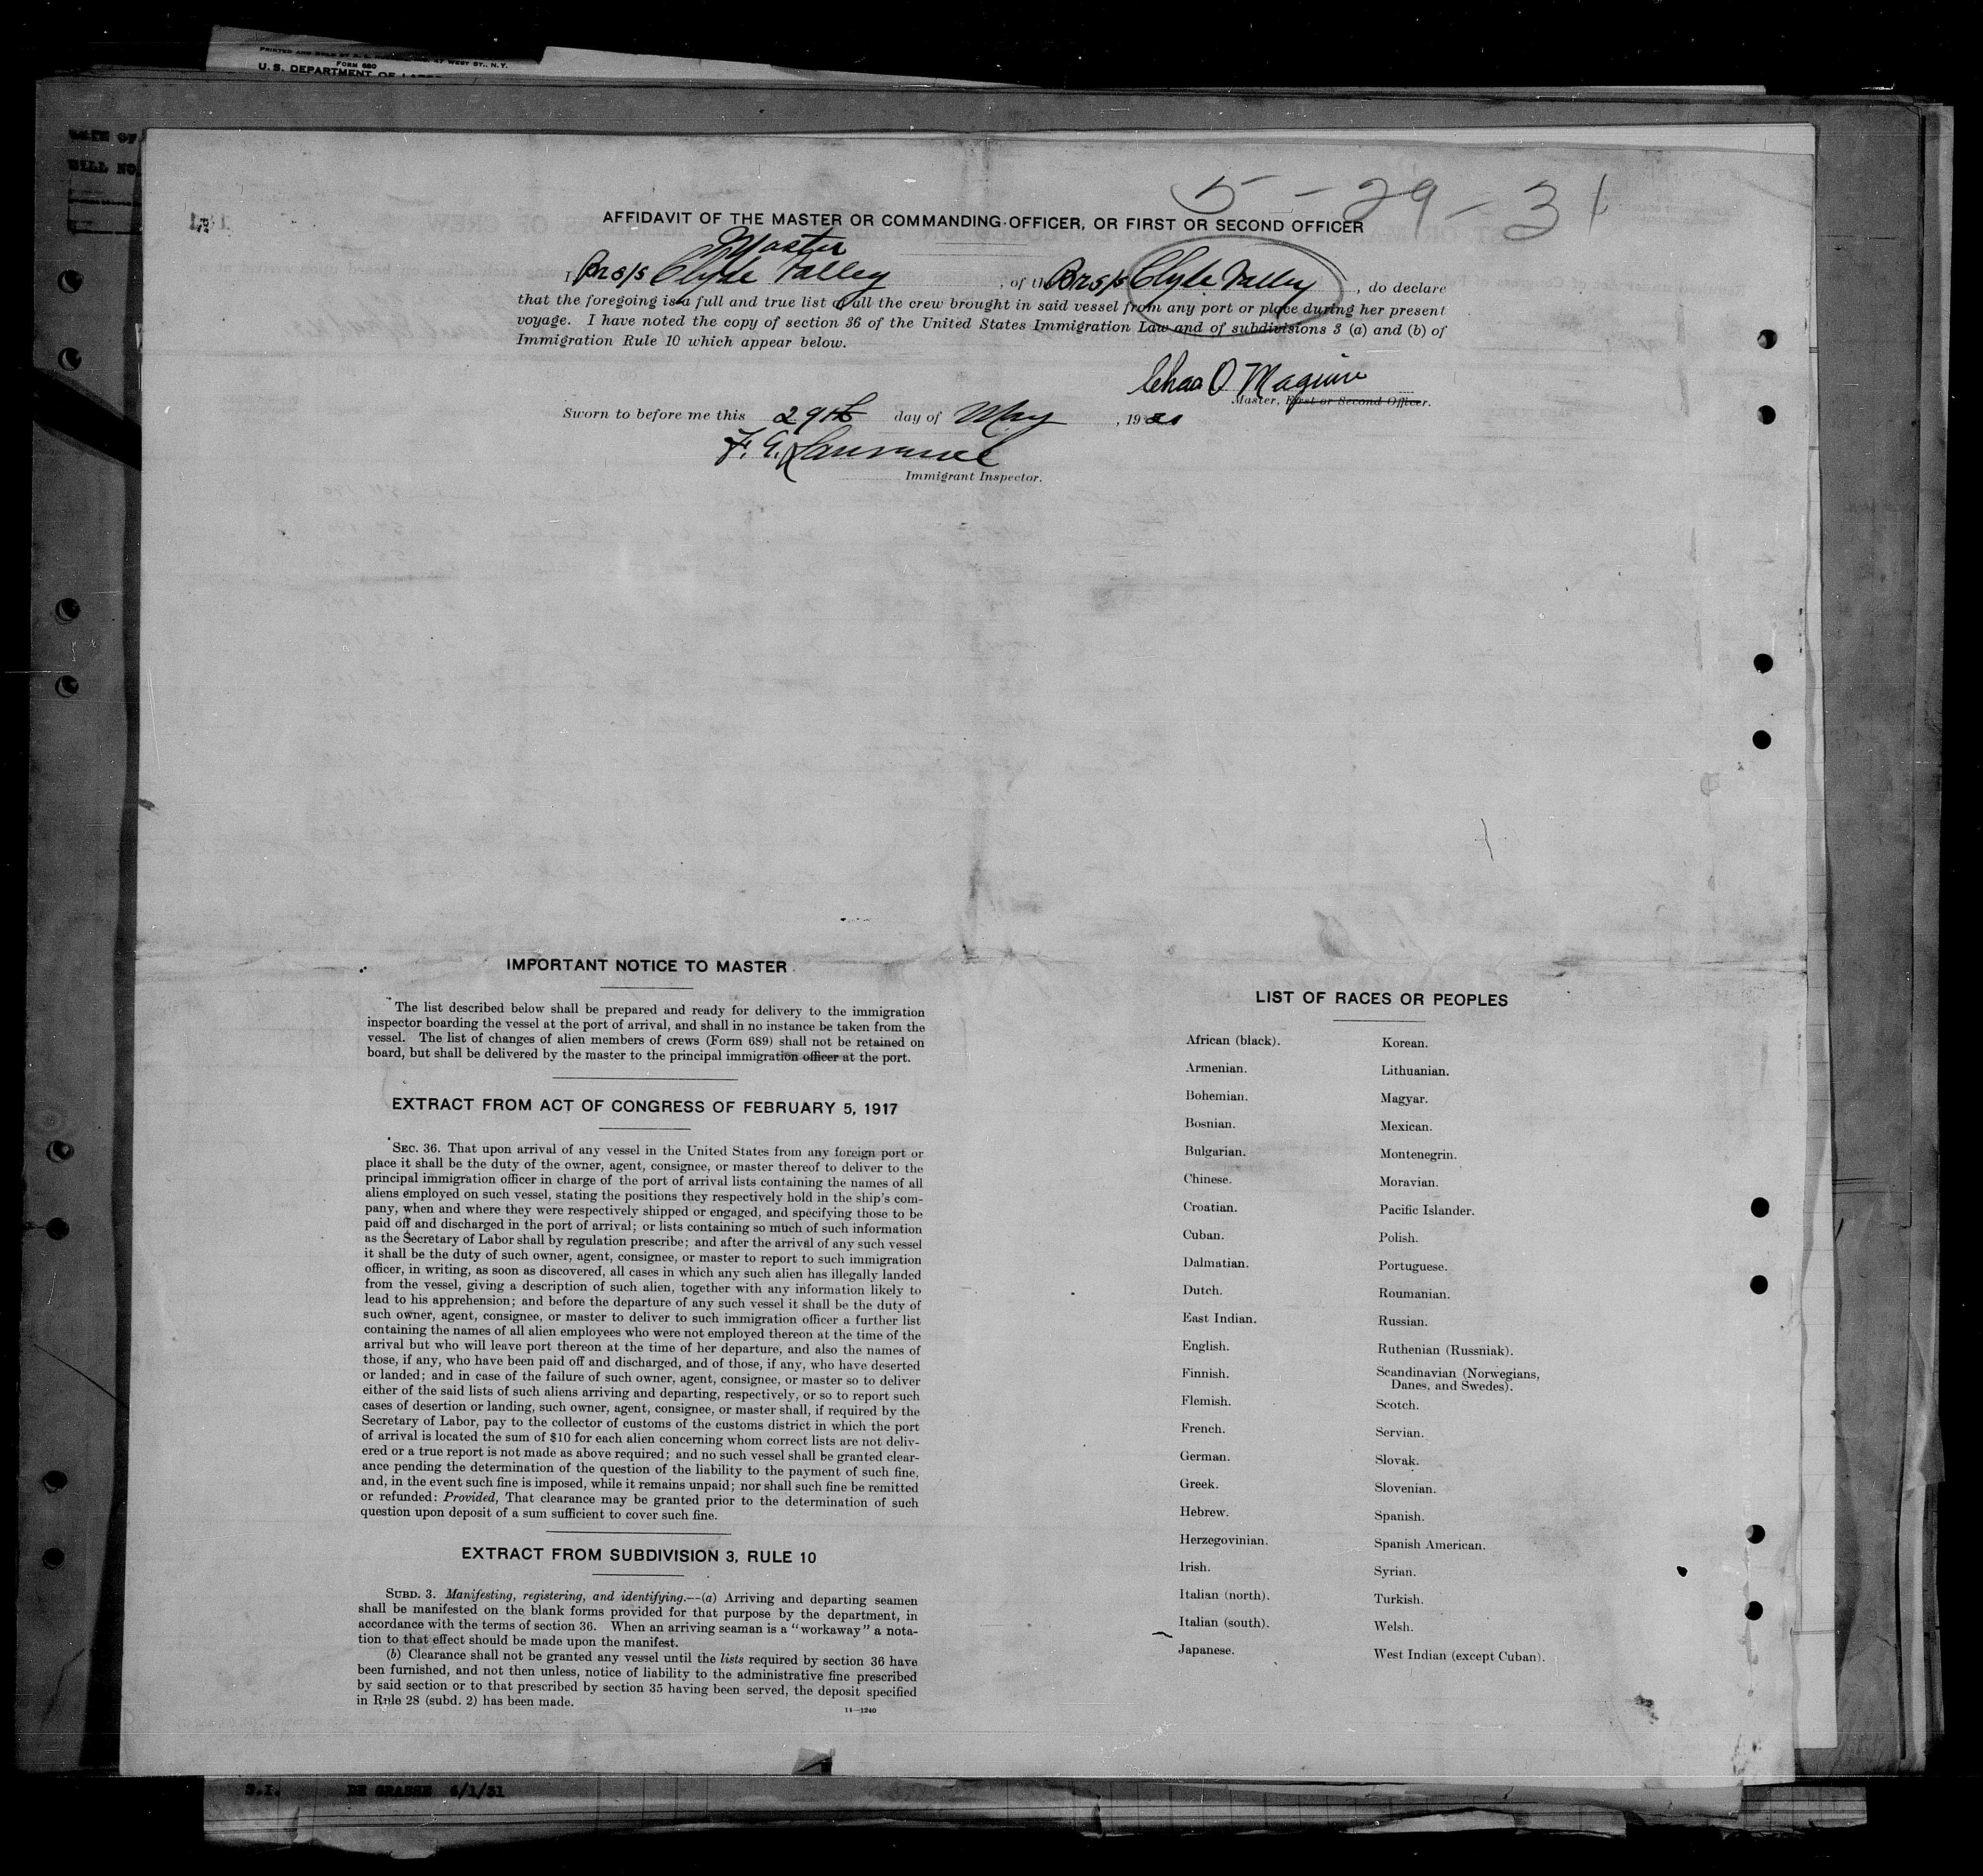 FORM 680
U. S. DEPARTMENT OF
5 - 29 - 31
AFFIDAVIT OF THE MASTER OR COMMANDING OFFICER, OR FIRST OR SECOND OFFICER
Master
I, Br s/s Clyde Valley, of the Br s/s Clyde Valley, do declare
that the foregoing is a full and true list of all the crew brought in said vessel from any port or place during her present
voyage. I have noted the copy of section 36 of the United States Immigration Law and of subdivisions 3 (a) and (b) of
Immigration Rule 10 which appear below.
Chas O Maguire
Master, First or Second Officer.
Sworn to before me this 29th day of May, 19
F. G. Lawrence
Immigrant Inspector.
IMPORTANT NOTICE TO MASTER
The list described below shall be prepared and ready for delivery to the immigration
inspector boarding the vessel at the port of arrival, and shall in no instance be taken from the
vessel. The list of changes of alien members of crews (Form 689) shall not be retained on
board, but shall be delivered by the master to the principal immigration officer at the port.
EXTRACT FROM ACT OF CONGRESS OF FEBRUARY 5, 1917
SEC. 36. That upon arrival of any vessel in the United States from any foreign port or
place it shall be the duty of the owner, agent, consignee, or master thereof to deliver to the
principal immigration officer in charge of the port of arrival lists containing the names of all
aliens employed on such vessel, stating the positions they respectively hold in the ship's com-
pany, when and where they were respectively shipped or engaged, and specifying those to be
paid off and discharged in the port of arrival; or lists containing so much of such information
as the Secretary of Labor shall by regulation prescribe; and after the arrival of any such vessel
it shall be the duty of such owner, agent, consignee, or master to report to such immigration
officer, in writing, as soon as discovered, all cases in which any such alien has illegally landed
from the vessel, giving a description of such alien, together with any information likely to
lead to his apprehension; and before the departure of any such vessel it shall be the duty of
such owner, agent, consignee, or master to deliver to such immigration officer a further list
containing the names of all alien employees who were not employed thereon at the time of the
arrival but who will leave port thereon at the time of her departure, and also the names of
those, if any, who have been paid off and discharged, and of those, if any, who have deserted
or landed; and in case of the failure of such owner, agent, consignee, or master so to deliver
either of the said lists of such aliens arriving and departing, respectively, or so to report such
cases of desertion or landing, such owner, agent, consignee, or master shall, if required by the
Secretary of Labor, pay to the collector of customs of the customs district in which the port
of arrival is located the sum of $10 for each alien concerning whom correct lists are not deliv-
ered or a true report is not made as above required; and no such vessel shall be granted clear-
ance pending the determination of the question of the liability to the payment of such fine,
and, in the event such fine is imposed, while it remains unpaid; nor shall such fine be remitted
or refunded: Provided, That clearance may be granted prior to the determination of such
question upon deposit of a sum sufficient to cover such fine.
EXTRACT FROM SUBDIVISION 3, RULE 10
SUBD. 3. Manifesting, registering, and identifying.—(a) Arriving and departing seamen
shall be manifested on the blank forms provided for that purpose by the department, in
accordance with the terms of section 36. When an arriving seaman is a "workaway" a nota-
tion to that effect should be made upon the manifest.
(b) Clearance shall not be granted any vessel until the lists required by section 36 have
been furnished, and not then unless, notice of liability to the administrative fine prescribed
by said section or to that prescribed by section 35 having been served, the deposit specified
in Rule 28 (subd. 2) has been made.
14—1240
LIST OF RACES OR PEOPLES
African (black).
Armenian.
Bohemian.
Bosnian.
Bulgarian.
Chinese.
Croatian.
Cuban.
Dalmatian.
Dutch.
East Indian.
English.
Finnish.
Flemish.
French.
German.
Greek.
Hebrew.
Herzegovinian.
Irish.
Italian (north).
Italian (south).
Japanese.
Korean.
Lithuanian.
Magyar.
Mexican.
Montenegrin.
Moravian.
Pacific Islander.
Polish.
Portuguese.
Roumanian.
Russian.
Ruthenian (Russniak).
Scandinavian (Norwegians,
Danes, and Swedes).
Scotch.
Servian.
Slovak.
Slovenian.
Spanish.
Spanish American.
Syrian.
Turkish.
Welsh.
West Indian (except Cuban).
S.I. DE GRASSE 6/1/31